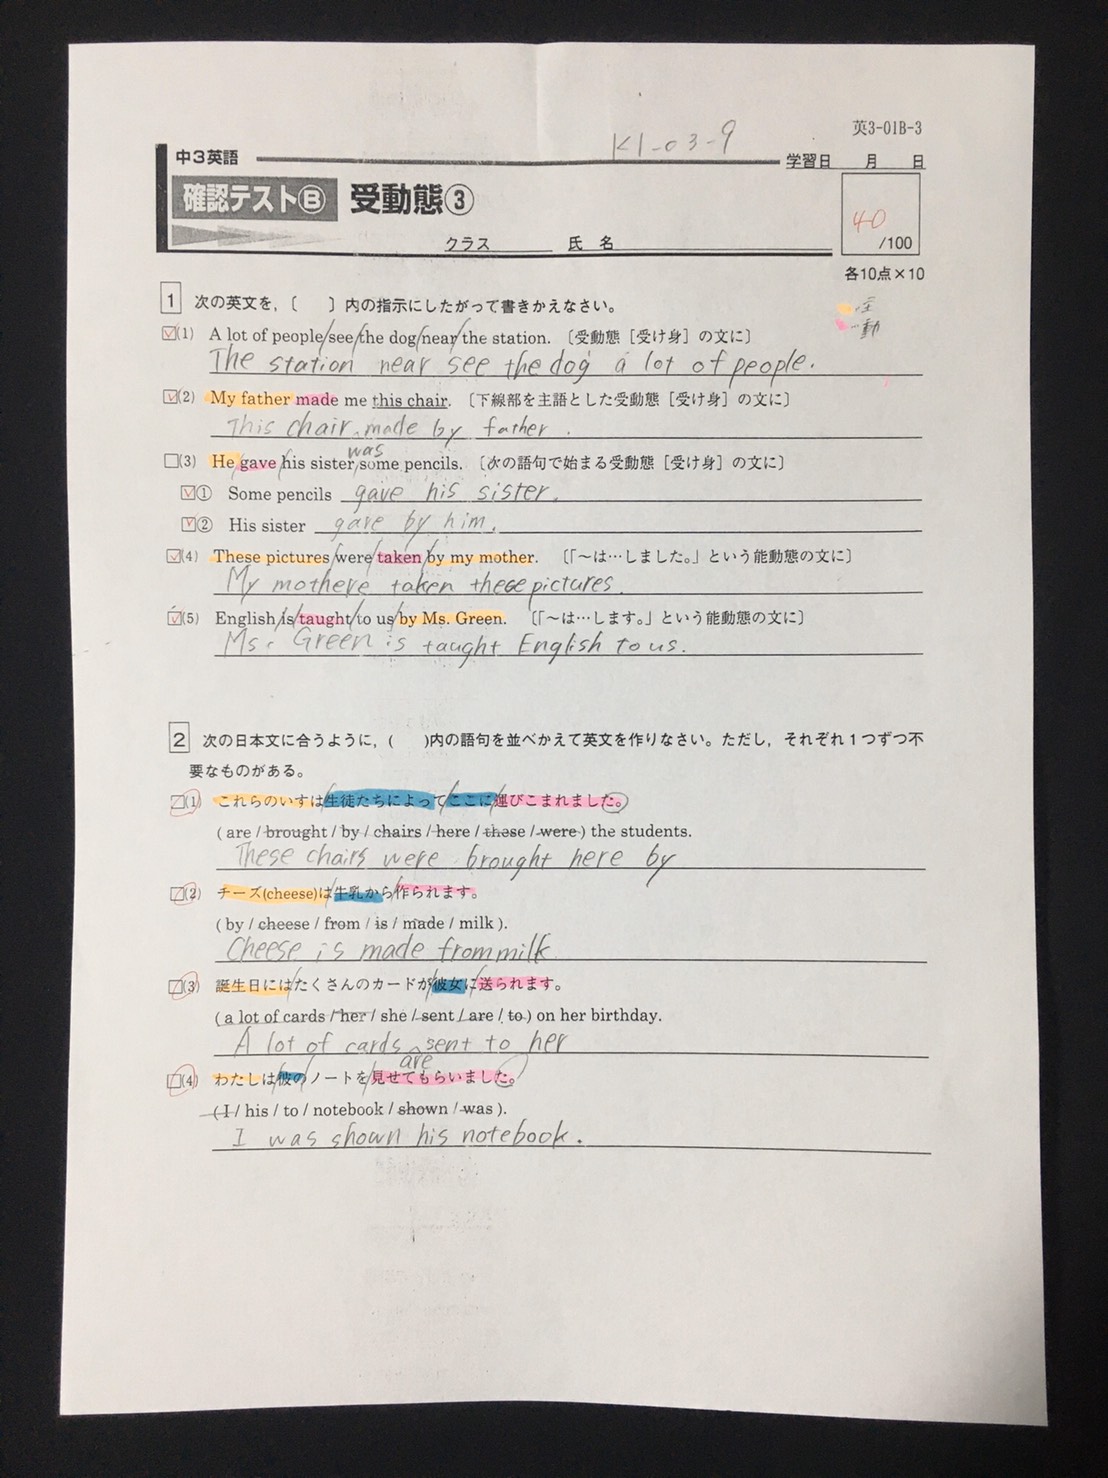 英3-01B-3
K1-03-9
中3英語 学習日 月 日
確認テストⒷ 受動態③
40
/100
クラス 氏 名
各10点×10
1 次の英文を,〔 〕内の指示にしたがって書きかえなさい。
…主
…動
(1) A lot of people/see/the dog/near/the station. 〔受動態［受け身］の文に〕
The station near see the dog a lot of people.
(2) My father made me this chair. 〔下線部を主語とした受動態［受け身］の文に〕
This chair made by father.
was
(3) He gave his sister some pencils. 〔次の語句で始まる受動態［受け身］の文に〕
① Some pencils gave his sister.
② His sister gave by him.
(4) These pictures/were/taken/by my mother. 〔「～は…しました。」という能動態の文に〕
My mothere taken these pictures.
(5) English/is/taught/to us/by Ms. Green. 〔「～は…します。」という能動態の文に〕
Ms. Green is taught English to us.
2 次の日本文に合うように,( )内の語句を並べかえて英文を作りなさい。ただし,それぞれ1つずつ不
要なものがある。
(1) これらのいすは生徒たちによってここに運びこまれました。
( are / brought / by / chairs / here / these / were ) the students.
These chairs were brought here by
(2) チーズ(cheese)は牛乳から作られます。
( by / cheese / from / is / made / milk ).
Cheese is made from milk
(3) 誕生日にはたくさんのカードが彼女に送られます。
( a lot of cards / her / she / sent / are / to ) on her birthday.
A lot of cards sent to her
are
(4) わたしは彼のノートを見せてもらいました。
( I / his / to / notebook / shown / was ).
I was shown his notebook.